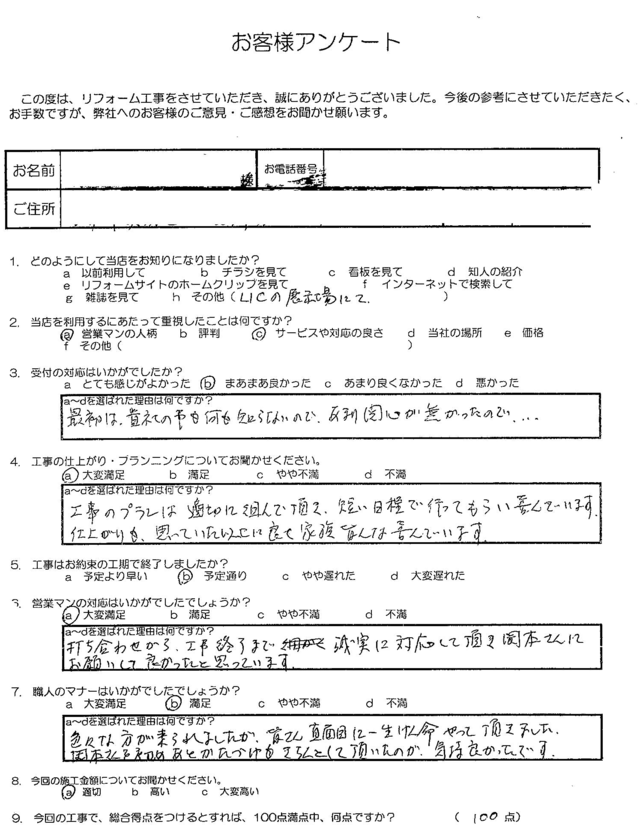 お客様アンケート
この度は、リフォーム工事をさせていただき、誠にありがとうございました。今後の参考にさせていただきたく、
お手数ですが、弊社へのお客様のご意見・ご感想をお聞かせ願います。
お名前 様 お電話番号
ご住所
1. どのようにして当店をお知りになりましたか?
a 以前利用して b チラシを見て c 看板を見て d 知人の紹介
e リフォームサイトのホームクリップを見て f インターネットで検索して
g 雑誌を見て h その他 ( LICの展示場にて )
2. 当店を利用するにあたって重視したことは何ですか?
a 営業マンの人柄 b 評判 c サービスや対応の良さ d 当社の場所 e 価格
f その他 ( )
3. 受付の対応はいかがでしたか?
a とても感じがよかった b まあまあ良かった c あまり良くなかった d 悪かった
a~dを選ばれた理由は何ですか?
最初は、貴社の事も何も知らないので、 関心が無かったので、...
4. 工事の仕上がり・プランニングについてお聞かせください。
a 大変満足 b 満足 c やや不満 d 不満
a~dを選ばれた理由は何ですか?
工事のプランは適切に組んで頂き、短い日程で行ってもらい喜んでいます。
仕上がりも、思っていた以上に良く家族皆んな喜んでいます
5. 工事はお約束の工期で終了しましたか?
a 予定より早い b 予定通り c やや遅れた d 大変遅れた
6. 営業マンの対応はいかがでしたでしょうか?
a 大変満足 b 満足 c やや不満 d 不満
a~dを選ばれた理由は何ですか?
打ち合わせから、工事終了まで 誠実に対応して頂き岡本さんに
お願いして良かったと思っています。
7. 職人のマナーはいかがでしたでしょうか?
a 大変満足 b 満足 c やや不満 d 不満
a~dを選ばれた理由は何ですか?
色々な方が来られましたが、皆さん真面目に一生けん命やって頂きました。
岡本さを初めあとかたづけもきちんとして頂いたのが、気持良かったです。
8. 今回の施工金額についてお聞かせください。
a 適切 b 高い c 大変高い
9. 今回の工事で、総合得点をつけるとすれば、100点満点中、何点ですか? ( 100 点)